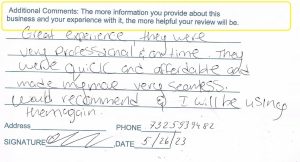 Additional Comments: The more information you provide about this
business and your experience with it, the more helpful your review will be.
Great experience they were
very professional & on time. They
were quick and affordable and
made my move very seamless.
Would recommend & I will be using
them again.
Address
PHONE 7325939482
SIGNATURE DATE 5/26/23